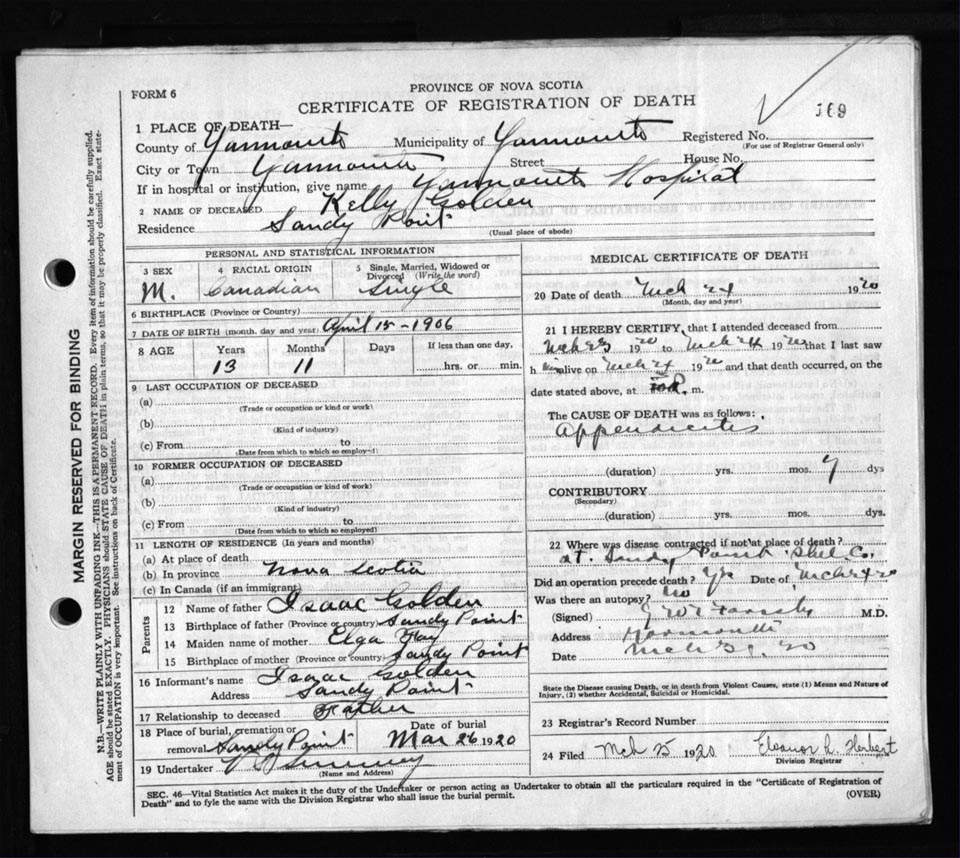 PROVINCE OF NOVA SCOTIA
FORM 6
CERTIFICATE OF REGISTRATION OF DEATH
169
1 PLACE OF DEATH—
County of Yarmouth Municipality of Yarmouth Registered No.
(For use of Registrar General only)
City or Town Yarmouth Street House No.
If in hospital or institution, give name Yarmouth Hospital
2 NAME OF DECEASED Kelly Golden
Residence Sandy Point
(Usual place of abode)
PERSONAL AND STATISTICAL INFORMATION
3 SEX 4 RACIAL ORIGIN 5 Single, Married, Widowed or Divorced (Write the word)
M. Canadian Single
6 BIRTHPLACE (Province or Country)
7 DATE OF BIRTH (month, day and year) April 15-1906
8 AGE Years Months Days If less than one day,
13 11 hrs. or min.
9 LAST OCCUPATION OF DECEASED
(a)
(Trade or occupation or kind of work)
(b)
(Kind of industry)
(c) From to
(Date from which to which so employed)
10 FORMER OCCUPATION OF DECEASED
(a)
(Trade or occupation or kind of work)
(b)
(Kind of industry)
(c) From to
(Date from which to which so employed)
11 LENGTH OF RESIDENCE (In years and months)
(a) At place of death
(b) In province Nova Scotia
(c) In Canada (if an immigrant)
Parents
12 Name of father Isaac Golden
13 Birthplace of father (Province or country) Sandy Point
14 Maiden name of mother Elga
15 Birthplace of mother (Province or country) Sandy Point
16 Informant's name Isaac Golden
Address Sandy Point
17 Relationship to deceased Father
18 Place of burial, cremation or Date of burial
removal Sandy Point Mar 26 1920
19 Undertaker
(Name and Address)
MEDICAL CERTIFICATE OF DEATH
20 Date of death Mch 24 1920
(Month, day and year)
21 I HEREBY CERTIFY, that I attended deceased from
Mch 23 1920 to Mch 24 1920 that I last saw
h im alive on Mch 24 1920 and that death occurred, on the
date stated above, at m.
The CAUSE OF DEATH was as follows:
Appendicitis
(duration) yrs. mos. dys
CONTRIBUTORY
(Secondary)
(duration) yrs. mos. dys.
22 Where was disease contracted if not at place of death?
at Sandy Point Shel Co.
Did an operation precede death? Yes Date of
Was there an autopsy? No
(Signed) M.D.
Address Yarmouth
Date
State the Disease causing Death, or in death from Violent Causes, state (1) Means and Nature of
Injury, (2) whether Accidental, Suicidal or Homicidal.
23 Registrar's Record Number
24 Filed Mch 25 1920 Eleanor L. Herbert
Division Registrar
SEC. 46—Vital Statistics Act makes it the duty of the Undertaker or person acting as Undertaker to obtain all the particulars required in the "Certificate of Registration of
Death" and to fyle the same with the Division Registrar who shall issue the burial permit.
(OVER)
MARGIN RESERVED FOR BINDING
N.B.—WRITE PLAINLY WITH UNFADING INK—THIS IS A PERMANENT RECORD. Every item of information should be carefully supplied.
AGE should be stated EXACTLY. PHYSICIANS should STATE CAUSE OF DEATH in plain terms, so that it may be properly classified. Exact state-
ment of OCCUPATION is very important. See instructions on back of Certificate.